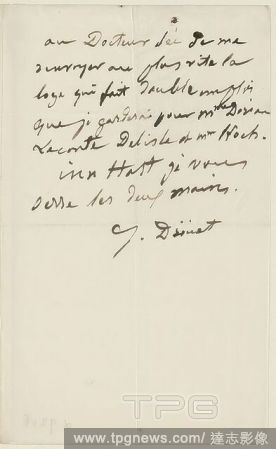 au Docteur Sée de me
renvoyer au plus vite la
loge qui fait double emploi
que je garderai pour Mme Dorian
Leconte Delisle et Mr Koch.
je vous
serre les deux mains.
J. Drouet
TPG
www.tpgnews.com/達志影像